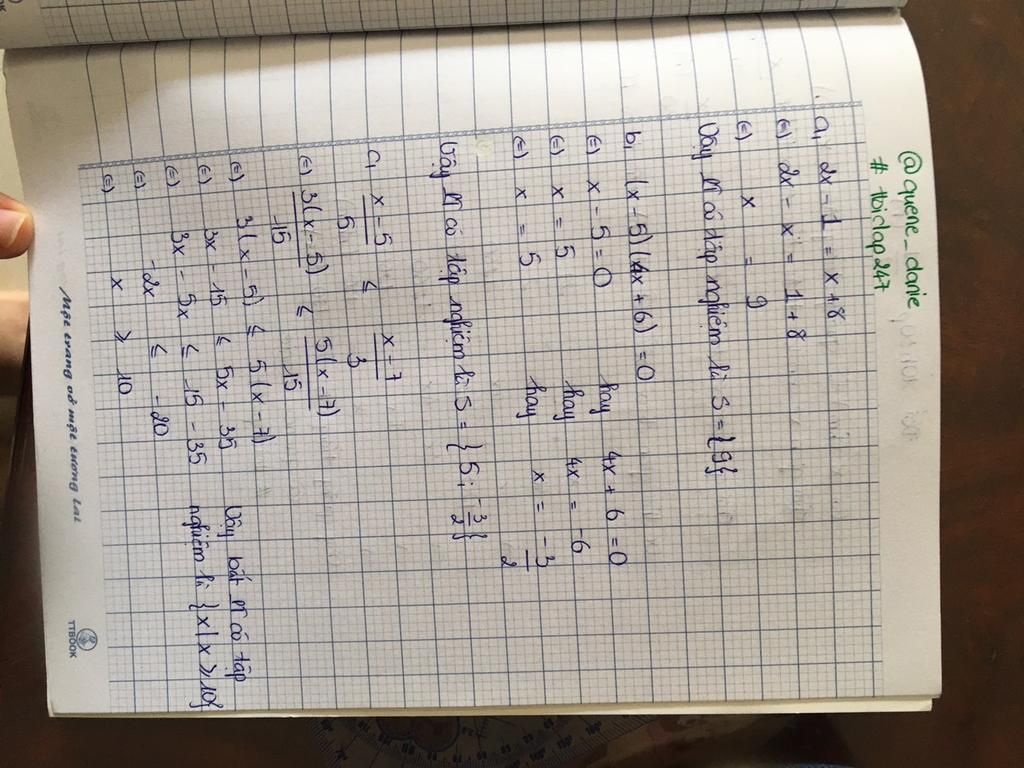 @quene_danie
# tbiclap247
1. a, 2x - 1 = x + 8
(=) 2x - x = 1 + 8
(=) x = 9
Vậy PT có tập nghiệm là S = {9}
b, (x - 5)(4x + 6) = 0
(=) x - 5 = 0 hay 4x + 6 = 0
(=) x = 5 hay 4x = -6
(=) x = 5 hay x = -3/2
Vậy PT có tập nghiệm là S = {5; -3/2}
c, x-5/5 ≤ x-7/3
(=) 3(x-5)/15 ≤ 5(x-7)/15
(=) 3(x-5) ≤ 5(x-7)
(=) 3x - 15 ≤ 5x - 35
(=) 3x - 5x ≤ 15 - 35
(=) -2x ≤ -20
(=) x ≥ 10
Vậy bất PT có tập
nghiệm là {x | x ≥ 10}
Một trang vở một tương lai
TTBOOK